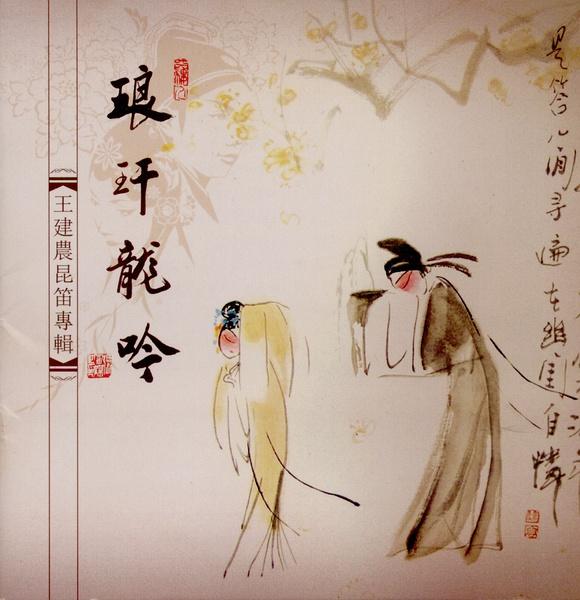 是答儿闲寻遍在幽闺自憐
琅玕龍吟
王建農昆笛專輯